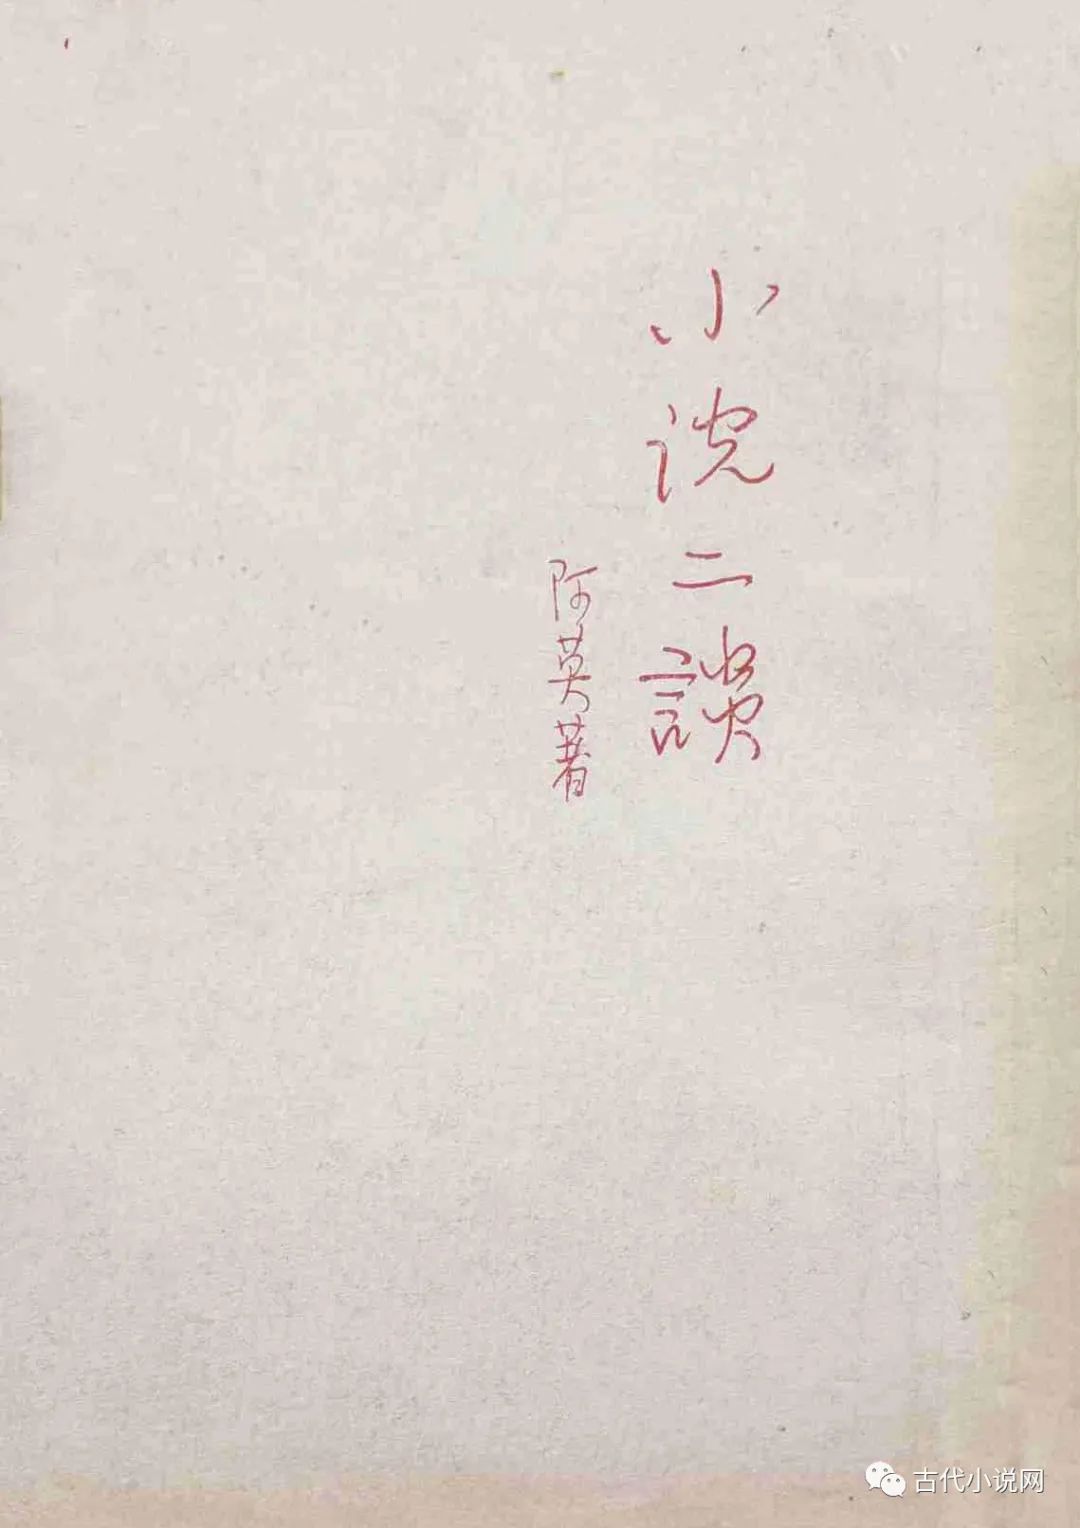 小说二談
阿英著
古代小说网